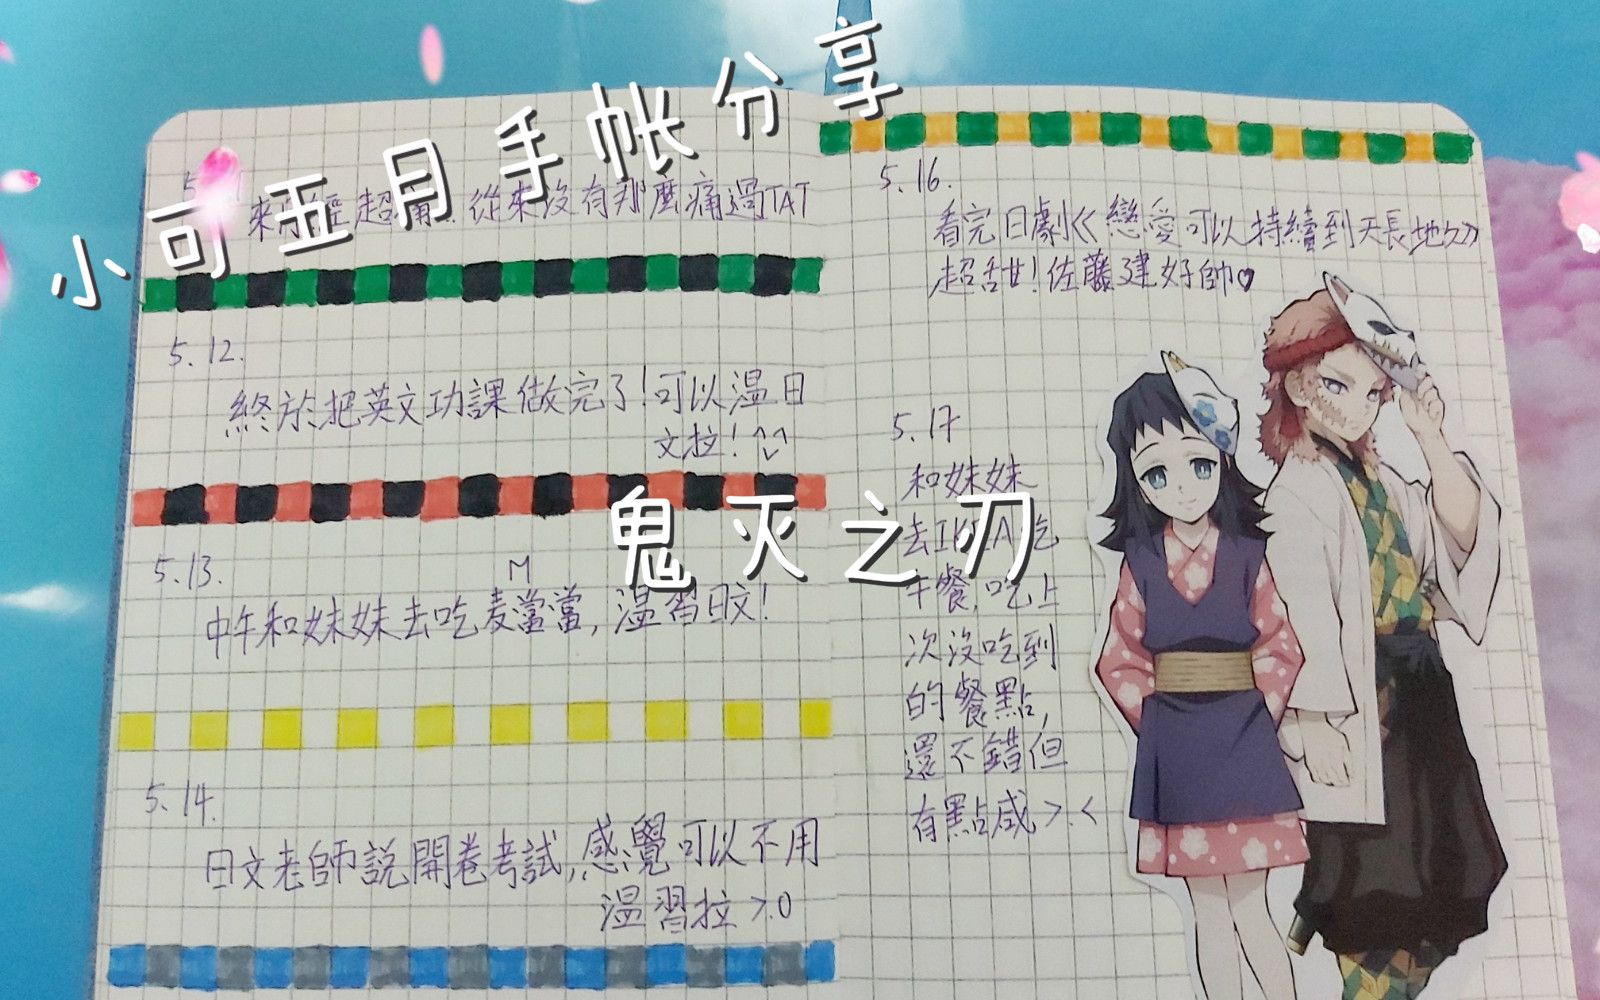 小可五月手帐分享
鬼灭之刃
5.
來 超痛．從來沒有那麼痛過TAT
5.12.
終於把英文功課做完了!可以溫日
文拉! ^v^
5.13.
M
中午和妹妹去吃麦當當,溫習日文!
5.14.
日文老師說開卷考試,感覺可以不用
溫習拉 >.0
5.16.
看完日劇《戀愛可以持續到天長地久》
超甜!佐藤建好帥♥
5.17
和妹妹
去IKEA吃
午餐,吃上
次沒吃到
的餐點,
還不錯但
有點咸>.<